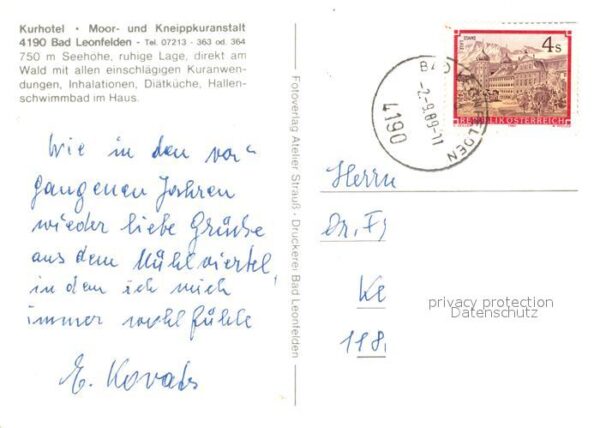 Kurhotel · Moor- und Kneippkuranstalt
4190 Bad Leonfelden - Tel. 07213 - 363 od. 364
750 m Seehöhe, ruhige Lage, direkt am
Wald mit allen einschlägigen Kuranwen-
dungen, Inhalationen, Diätküche, Hallen-
schwimmbad im Haus.
Wie in den ver-
gangenen Jahren
wieder liebe Grüße
aus dem Mühlviertel,
in dem ich mich
immer wohlfühle
E. Kovats
Fotoverlag Atelier Strauß · Druckerei Bad Leonfelden
STIFT STAMS
4 S
REPUBLIK ÖSTERREICH
BAD LEONFELDEN
-2.-9.89-11
4190
Herrn
Dr. F
Ke
118
privacy protection
Datenschutz